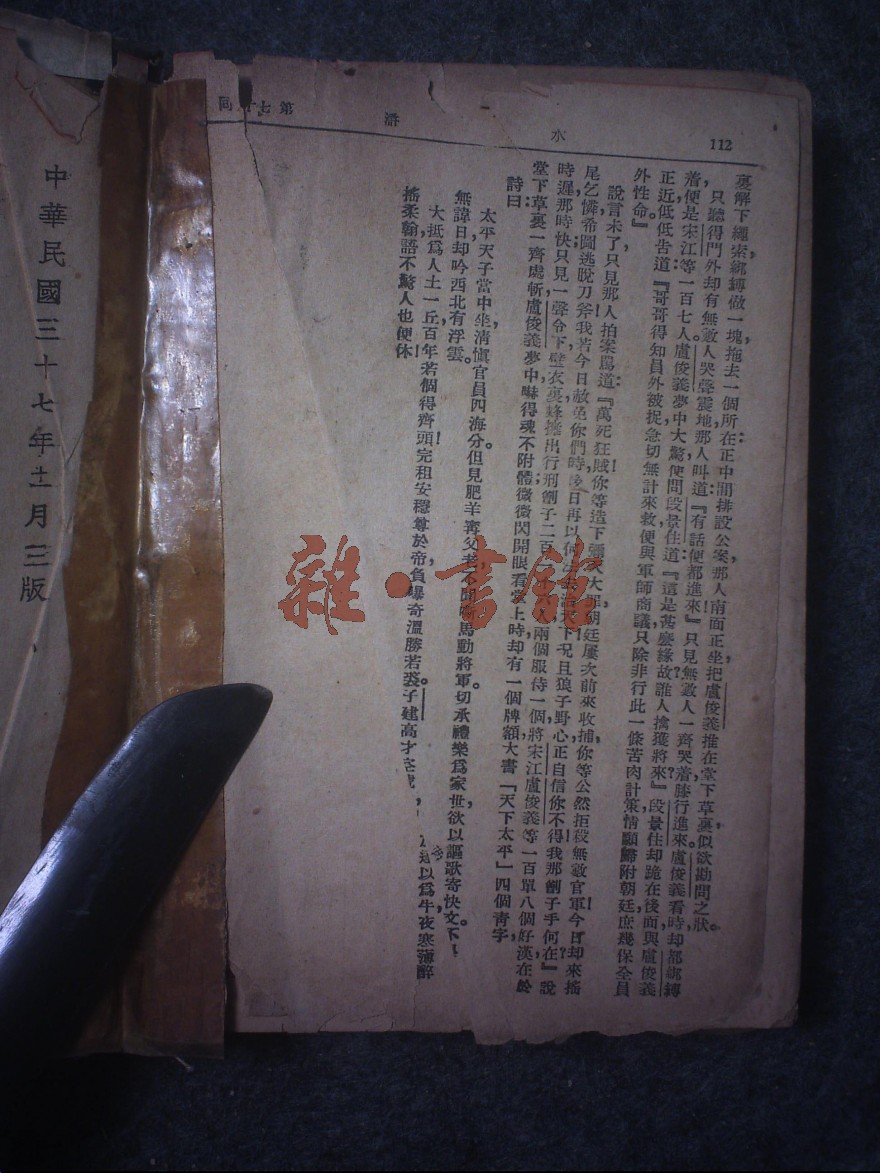 112
水
滸
第七十回
裏解下繩索綁縛做一塊,拖去一個所在:正中間排設公案,那人南面正坐,把盧俊義推在堂下草裏,似欲勘問之狀。
只聽得門外却有無數人哭聲震地。那人叫道:『有話便都進來!』只見無數人一齊哭着膝行進來。盧俊義看時,却都綁縛
着,便是宋江等一百七人。盧俊義夢中大驚,便問段景住道:『這是甚麽緣故?誰人擒獲將來?』段景住却跪在後面,與盧俊義
正近,低低告道:『哥哥得知員外被捉,急切無計來救,便與軍師商議,只除非行此一條苦肉計策,情願歸附朝廷,庶幾保全員
外性命。』
說言未了,只見那人拍案罵道:『萬死狂賊!你等造下彌天大罪,朝廷屢次前來收捕,你等公然拒殺無數官軍!今日却來搖
尾乞憐,希圖逃脫刀斧!我若今日赦免你們時,後日再以何法去治天下!況且狼子野心,正自信你不得!我那劊子手何在?』說
時遲,那時快,只見一聲令下,壁衣裏蜂擁出行刑劊子二百 兩個服侍一個,將宋江盧俊義等一百單八個好漢在於
堂下草裏一齊處斬。盧俊義夢中嚇得魂不附體;微微閃開眼看堂上時,却有一個牌額,大書『天下太平』四個青字。
詩曰:
太平天子當中坐,清慎官員四海分。但見肥羊寗父老,不聞嘶馬動將軍。切承禮樂爲家世,欲以謳歌寄快文。不
無諱日,却吟西北有浮雲。
大抵爲人土一丘,百年若個得齊頭?完租安穩尊於帝,負曝奇溫勝若裘。子建高才空號
以爲牛夜寒薄醉
搖柔翰,語不驚人也便休!
中華民國三十七年十一月三版
雜·書館